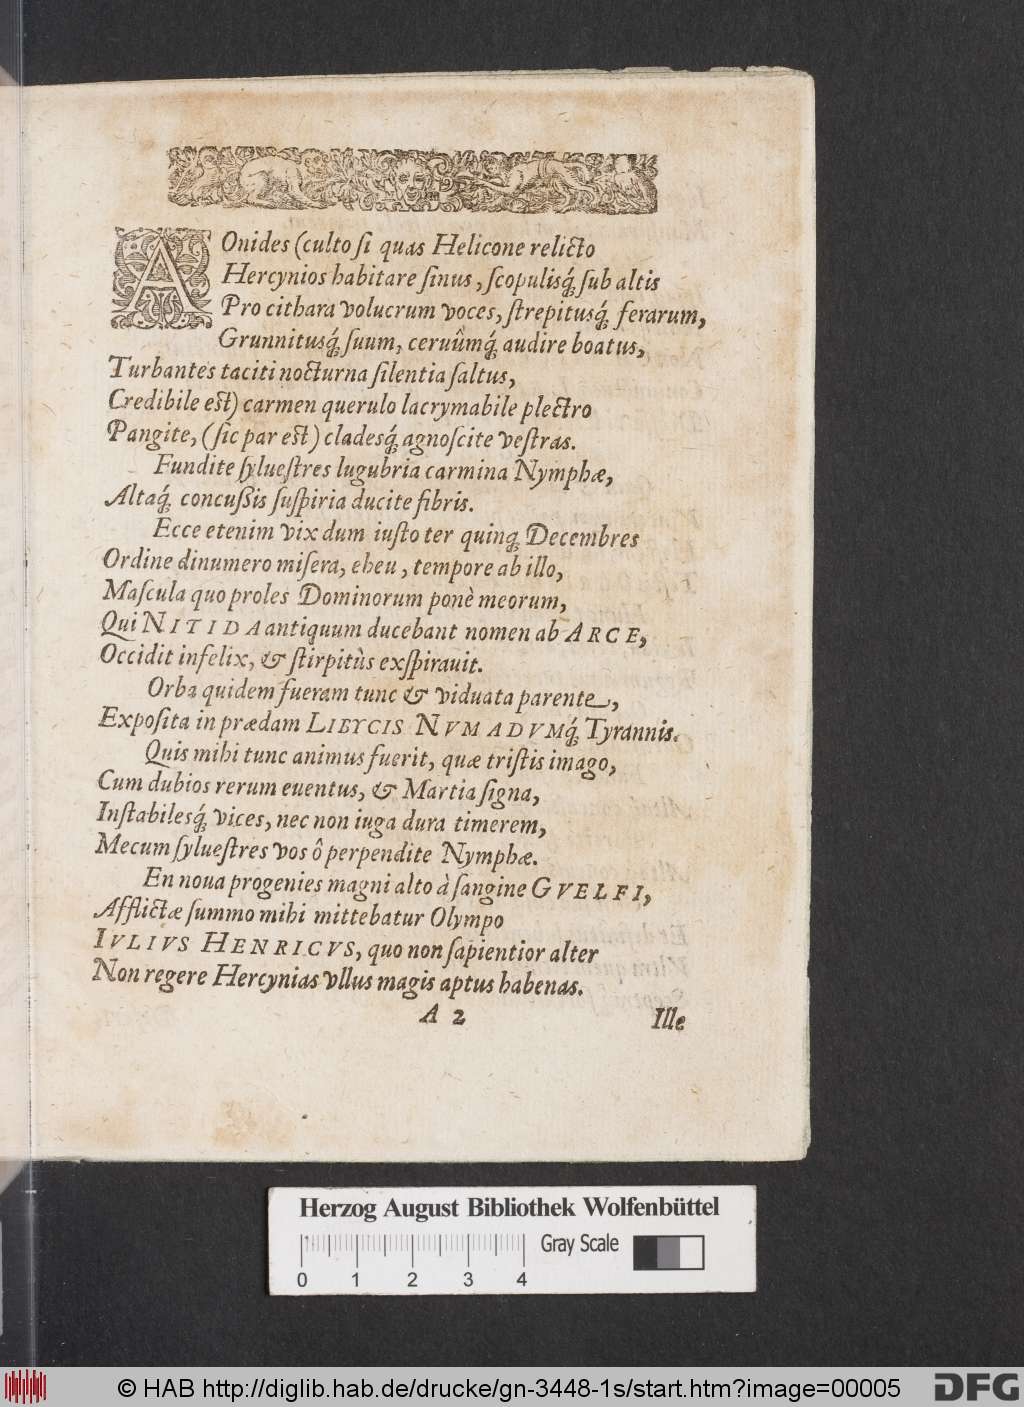 AOnides (culto ſi quas Helicone relicto
Hercynios habitare ſinus, ſcopulisq́; ſub altis
Pro cithara volucrum voces, ſtrepitusq́; ferarum,
Grunnitusq́; ſuum, ceruûmq́; audire boatus,
Turbantes taciti nocturna ſilentia ſaltus,
Credibile eſt) carmen querulo lacrymabile plectro
Pangite, (ſic par eſt) cladesq́; agnoſcite veſtras.
Fundite ſylueſtres lugubria carmina Nymphæ,
Altaq́; concuſsis ſuſpiria ducite fibris.
Ecce etenim vix dum iuſto ter quinq; Decembres
Ordine dinumero miſera, eheu, tempore ab illo,
Maſcula quo proles Dominorum ponè meorum,
Qui NITIDA antiquum ducebant nomen ab ARCE,
Occidit infelix, & ſtirpitùs exſpirauit.
Orba quidem fueram tunc & viduata parente,
Expoſita in prædam LIBYCIS NVMADVMq́; Tyrannis.
Quis mihi tunc animus fuerit, quæ triſtis imago,
Cum dubios rerum euentus, & Martia ſigna,
Inſtabilesq́; vices, nec non iuga dura timerem,
Mecum ſylueſtres vos ô perpendite Nymphæ.
En noua progenies magni alto à ſangine GVELFI,
Afflictæ ſummo mihi mittebatur Olympo
IVLIVS HENRICVS, quo non ſapientior alter
Non regere Hercynias vllus magis aptus habenas.
A 2 Ille
Herzog August Bibliothek Wolfenbüttel
Gray Scale
0 1 2 3 4
© HAB http://diglib.hab.de/drucke/gn-3448-1s/start.htm?image=00005
DFG